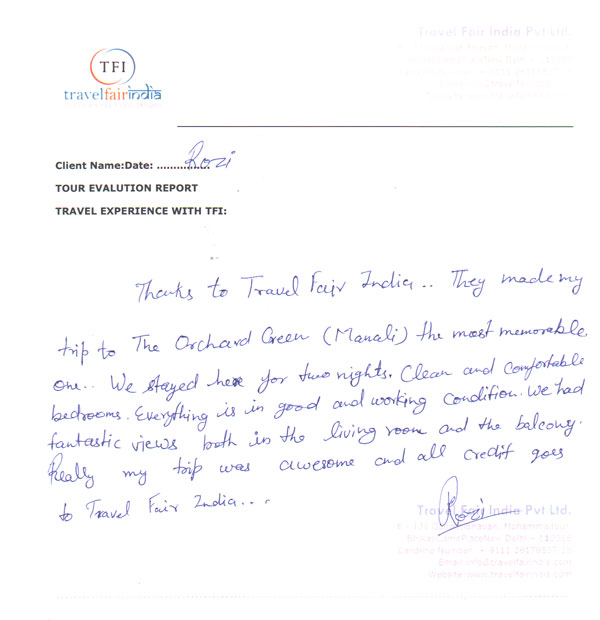 Travel Fair India Pvt Ltd.
TFI
travelfairindia
Client Name:Date: ................ Rozi
TOUR EVALUTION REPORT
TRAVEL EXPERIENCE WITH TFI:
Thanks to Travel Fair India.. They made my
trip to The Orchard Green (Manali) the most memorable
one.. We stayed here for two nights. Clean and Comfortable
bedrooms. Everything is in good and working Condition. We had
fantastic views both in the living room and the balcony.
Really my trip was awesome and all credit goes
to Travel Fair India...
Rozi
Travel Fair India Pvt Ltd.
Email: info@travelfairindia.com
Website: www.travelfairindia.com